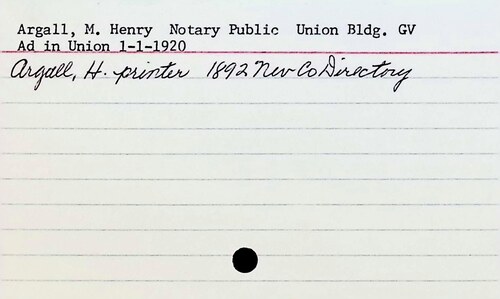 Argall, M. Henry  Notary Public  Union Bldg. GV
Ad in Union 1-1-1920
Argall, H. printer 1892 Nev Co Directory